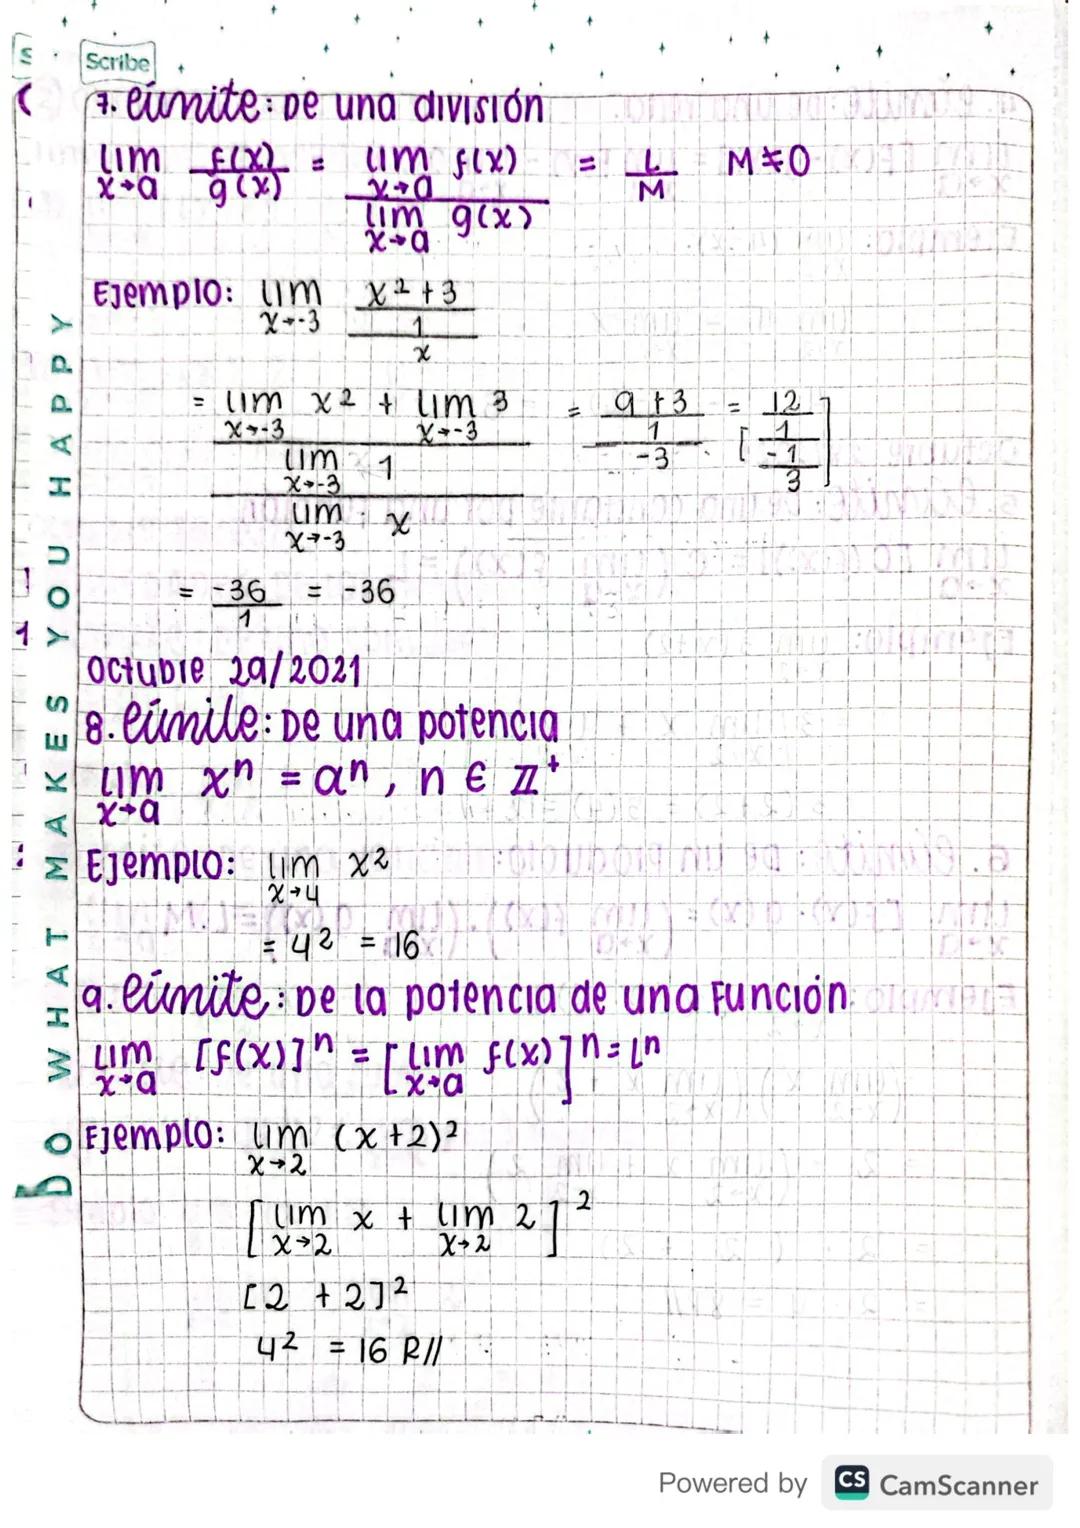 Scribe
7. Límite: De una división
lim x→a f(x)/g(x) = lim x→a f(x) / lim x→a g(x) = L/M M≠0
Ejemplo: lim x→-3 x² + 3 / 1 / x
= lim x→-3 x² + lim x→-3 3 / lim x→-3 1 / lim x→-3 x = 9+3 / 1 / -3 = [12 / 1 / -1 / 3]
= -36/1 = -36
Octubre 29/2021
8. Límite: De una potencia
lim x→a xⁿ = aⁿ, n ∈ ℤ⁺
Ejemplo: lim x→4 x²
= 4² = 16
9. Límite: De la potencia de una Función
lim x→a [f(x)]ⁿ = [lim x→a f(x)]ⁿ = Lⁿ
Ejemplo: lim x→2 (x+2)²
[lim x→2 x + lim x→2 2]²
[2 + 2]²
4² = 16 R//
DO WHAT MAKES YOU HAPPY
Powered by CS CamScanner